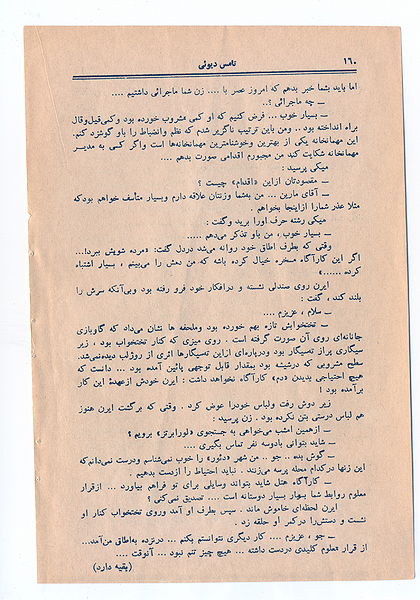 ۱۶۰
تامس دیوئی
اما باید بشما خبر بدهم که امروز عصر با .... زن شما ماجرائی داشتیم ....
ـ چه ماجرائی ؟..
ـ بسیار خوب ... فرض کنیم که او کمی مشروب خورده بود و کمی قیل‌وقال
براه انداخته بود .. ومن باین ترتیب ناگزیر شدم که نظم وانضباط را باو گوشزد کنم.
این مهمانخانه یکی از بهترین وخوشنامترین مهمانخانه‌ها است واگر کسی به مدیر
مهمانخانه شکایت کند من مجبورم اقدامی صورت بدهم ....
میکی پرسید :
ـ مقصودتان ازاین «اقدام» چیست ؟
ـ آقای مارین ... من به‌شما وزنتان علاقه دارم وبسیار متأسف خواهم بودکه
مثلا عذر شمارا ازاینجا بخواهم .
میکی رشته حرف اورا برید وگفت :
ـ بسیار خوب ، من باو تذکر می‌دهم .....
وقتی که بطرف اطاق خود روانه می‌شد دردل گفت: «مرده شویش ببرد!...
اگر این کارآگاه مسخره خیال کرده باشه که من دمش را می‌بینم ، بسیار اشتباه
کرده ......»
ایرن روی صندلی نشسته و درافکار خود فرو رفته بود وبی‌آنکه سرش را
بلند کند ، گفت :
ـ سلام ، عزیزم ....
ـ تختخوابش تازه بهم خورده بود وملحفه ها نشان میداد که گاوبازی
جانانه‌ای روی آن صورت گرفته است . روی میزی که کنار تختخواب بود ، زیر
سیگاری پراز ته‌سیگار بود ودرپاره‌ای ازاین ته‌سیگارها اثری از روژلب دیده‌نمی‌شد.
سطح مشروبی که درشیشه بود بمقدار قابل توجهی پائین آمده بود ... دانست که
هیچ احتیاجی بدیدن «دم» کارآگاه نخواهد داشت : ایرن خودش ازعهدهٔ این کار
برآمده بود !
زیر دوش رفت ولباس خودرا عوض کرد . وقتی که برگشت ایرن هنوز
هم لباس درستی بتن نکرده بود . زن پرسید :
ـ ازهمین امشب می‌خواهی به جستجوی «لورابرتز» برویم ؟
ـ شاید بتوانی بادوسه نفر تماس بگیری ....
ـ گوش بده .. جو ... من شهر «دئور» را خوب نمی‌شناسم ودرست نمی‌دانم‌که
این زنها درکدام محله پرسه می‌زنند . نباید احتیاط را ازدست بدهیم .
ـ کارآگاه هتل شاید بتواند وسایلی برای تو فراهم بیاورد ... ازقرار
معلوم روابط شما بسیار بسیار دوستانه است .... تصدیق نمی‌کنی ؟
ایرن لحظه‌ای خاموش ماند . سپس بطرف او آمد وروی تختخواب کنار او
نشست و دستش‌را درکمر او حلقه زد .
ـ جو ، عزیزم .... کار دیگری نتوانستم بکنم ... درنزده به‌اطاق من‌آمد...
از قرار معلوم کلیدی دردست داشته ... هیچ چیز تنم نبود ... آنوقت ....
(بقیه دارد)